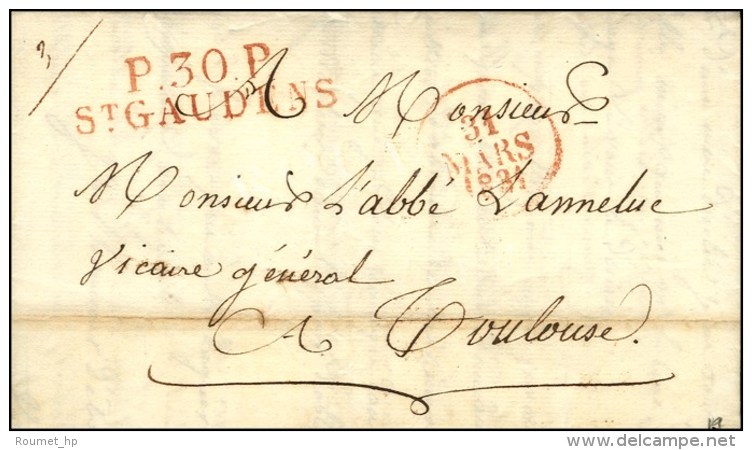 3
P.30.P.
ST GAUDENS
31
MARS
1821
A Monsieur
Monsieur L'abbé Lanneluc
Vicaire général
A Toulouse.
Roumet_hp
© www.delcampe.net